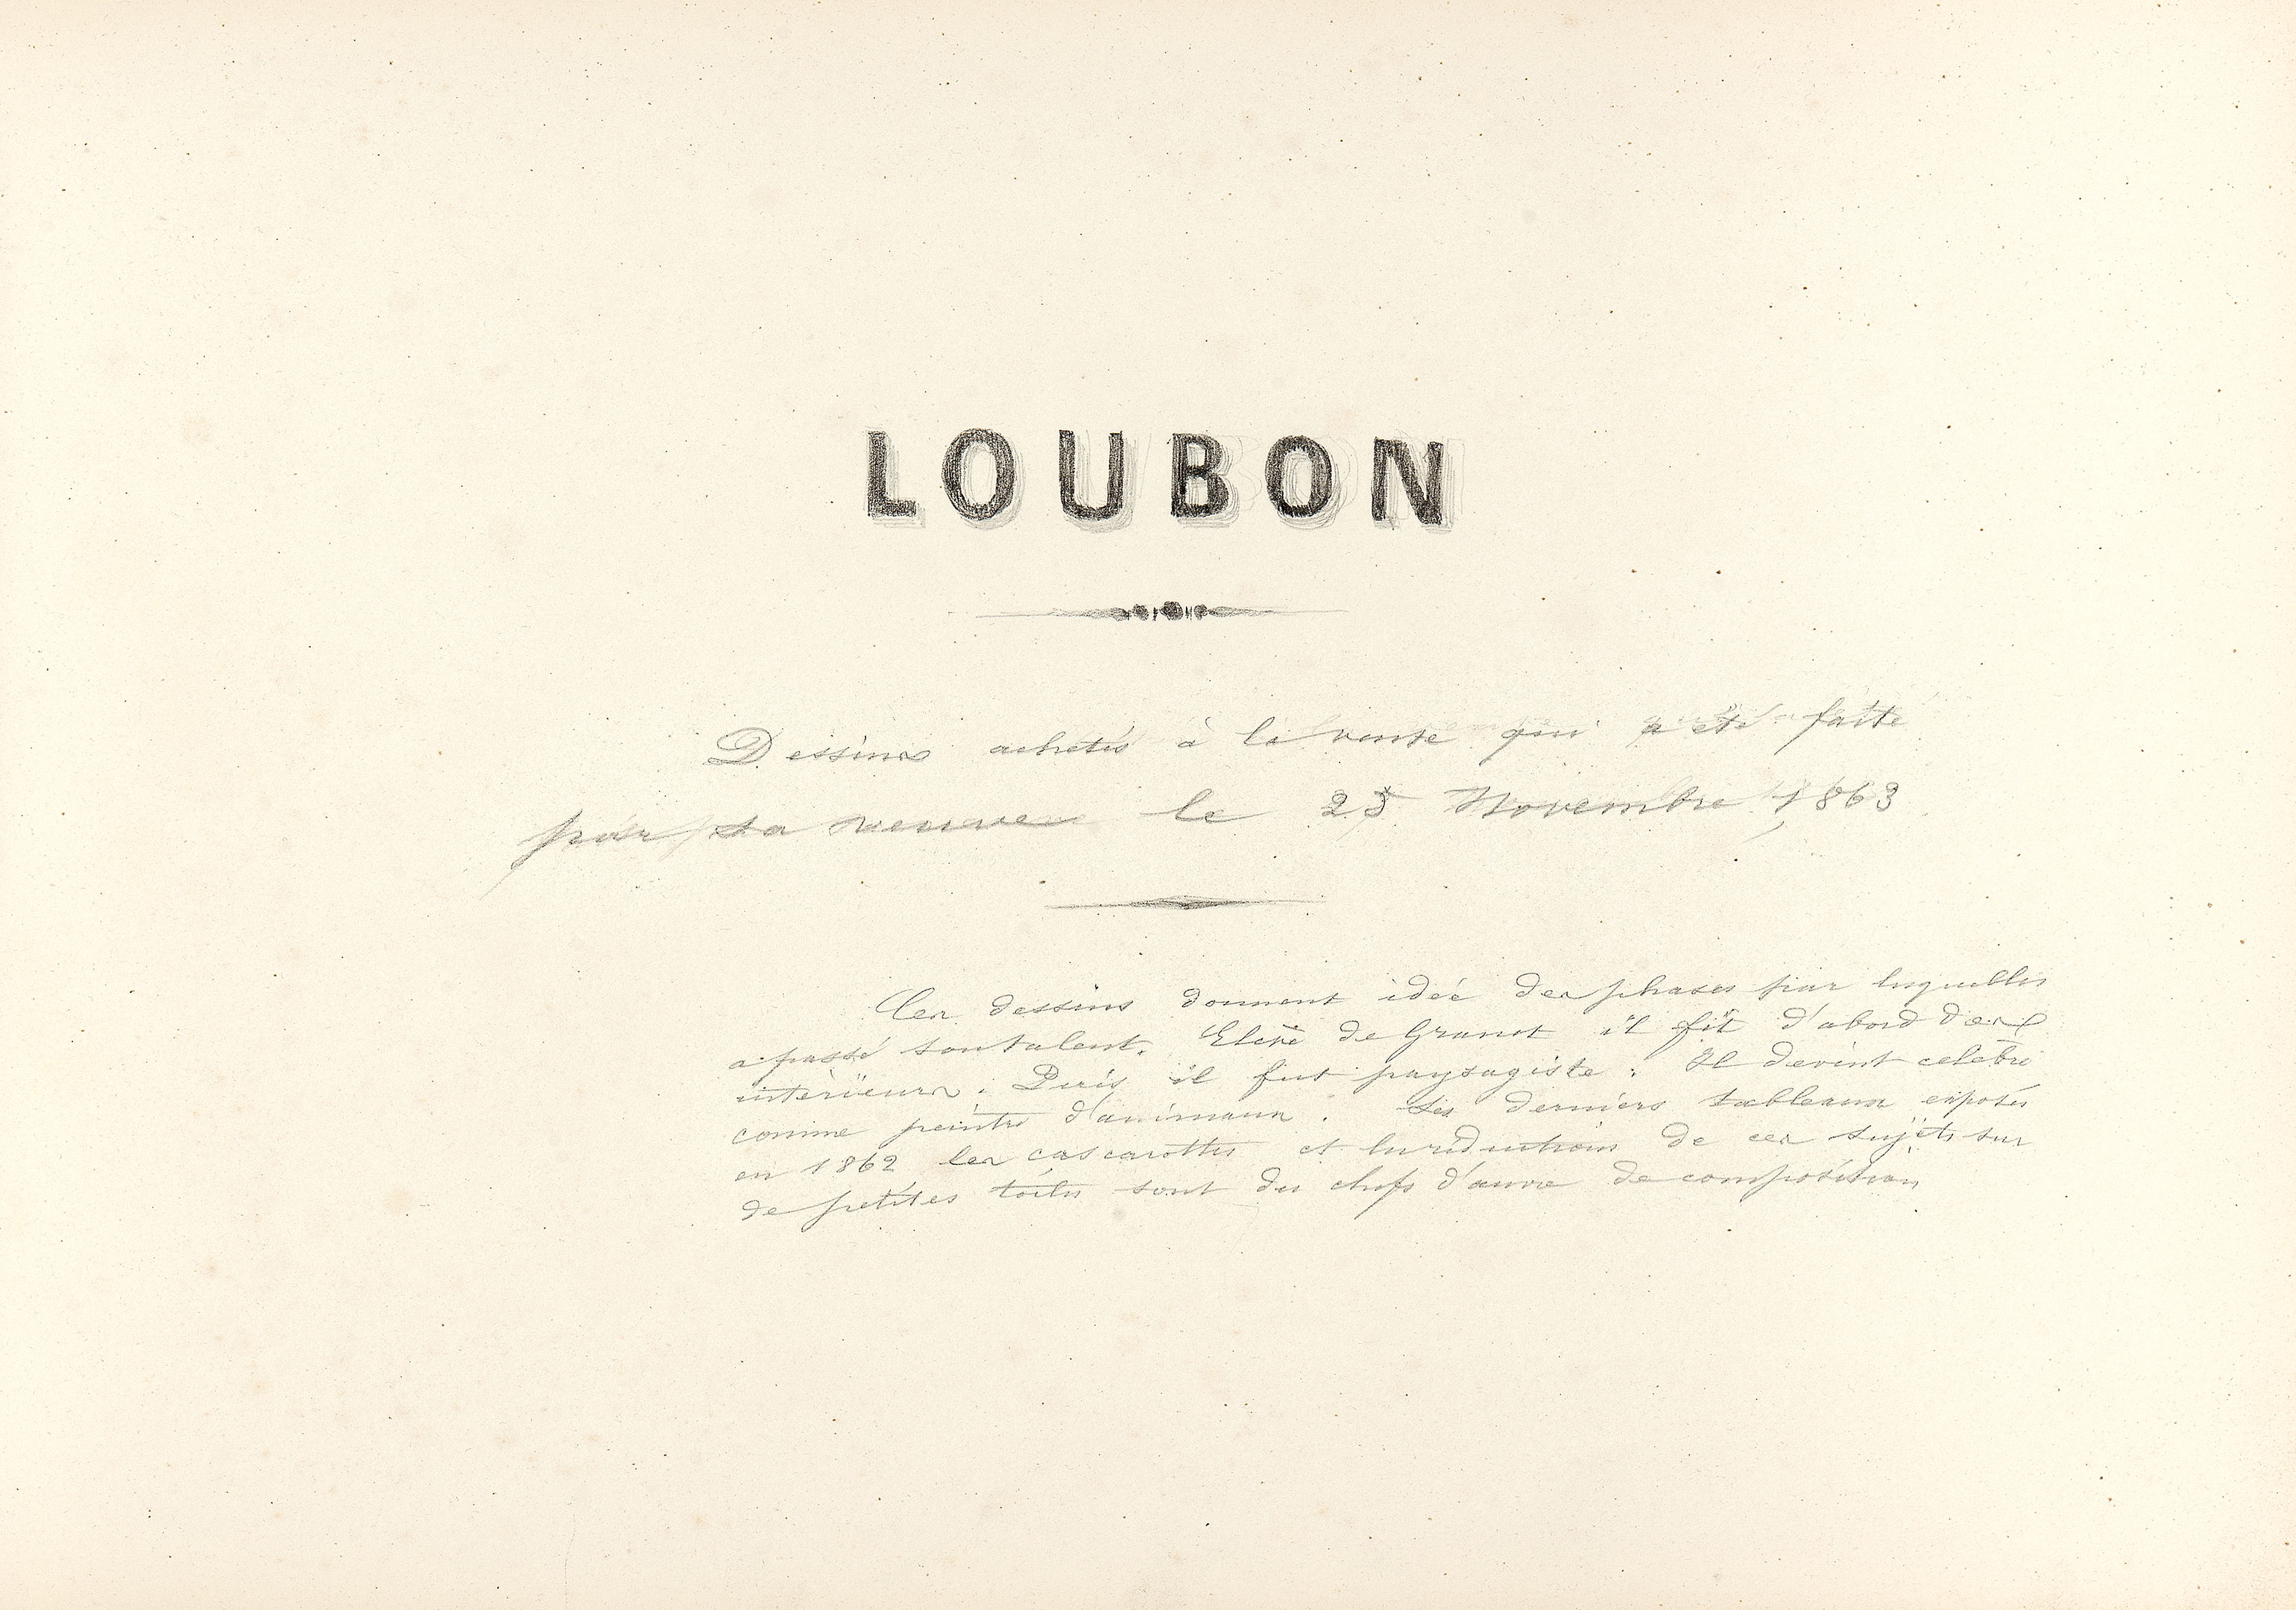 LOUBON
Dessins achetés à la vente qui a été faite
par sa veuve le 25 Novembre 1863
Ces dessins donnent idée des phases par lesquelles
a passé son talent. Elève de Granet il fit d'abord des
intérieurs. Puis il fut paysagiste. Il devint celèbre
comme peintre d'animaux. Ses derniers tableaux exposés
en 1862 les cascarottes et les réductions de ces sujets sur
de petites toiles sont des chefs d'œuvre de composition